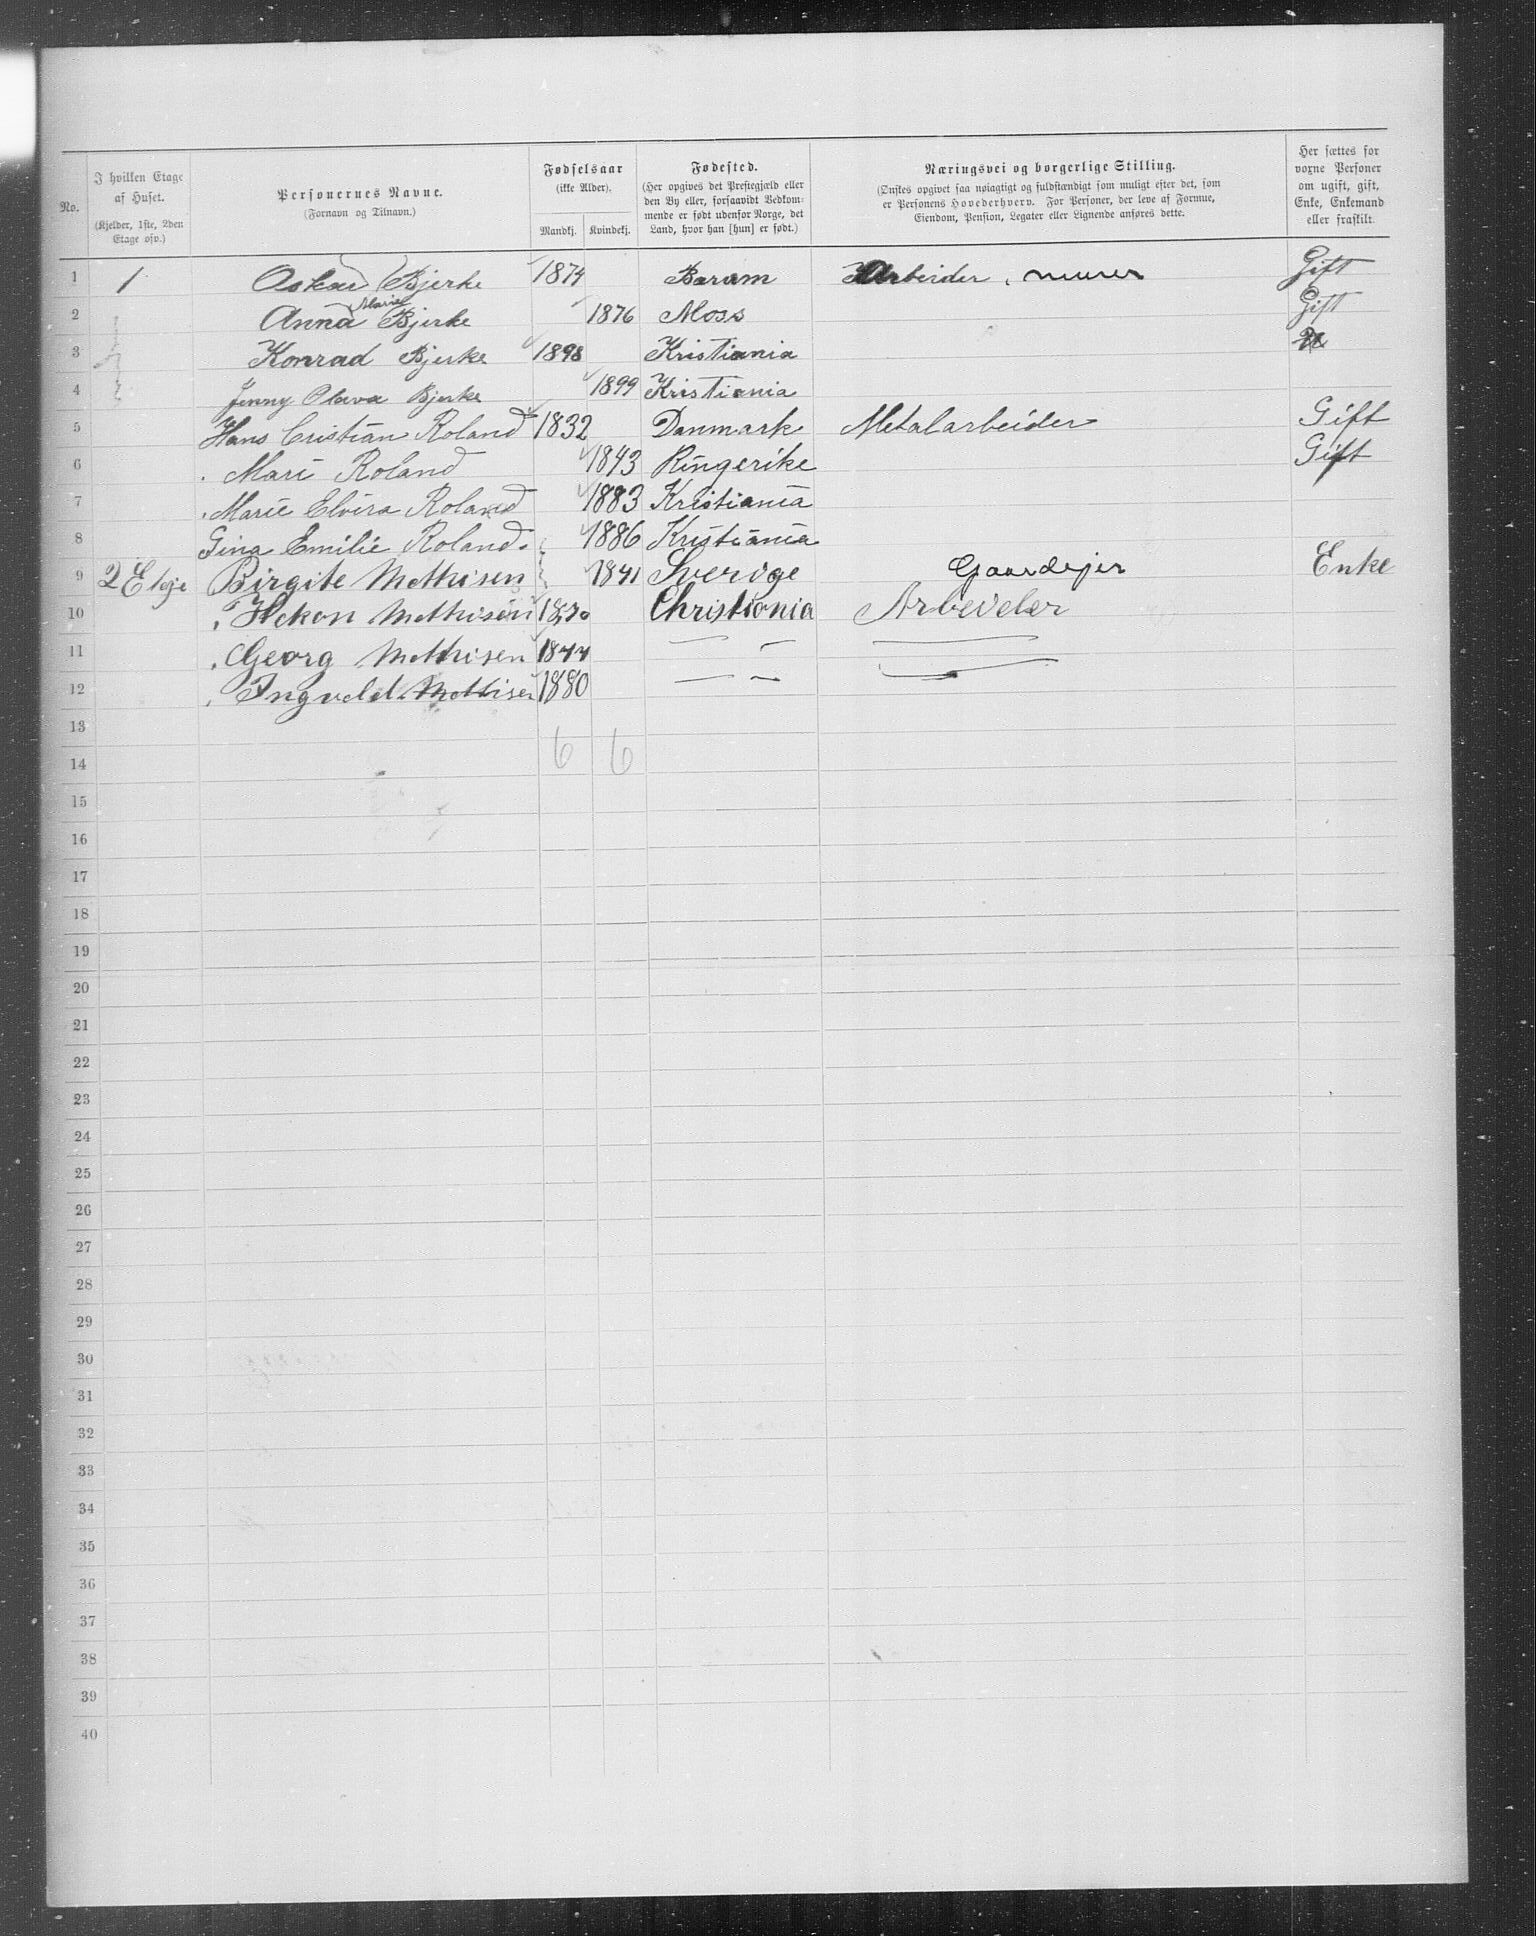 No. | I hvilken Etage af Huset. (Kjelder, 1ste, 2den Etage osv.) | Personernes Navne. (Fornavn og Tilnavn.) | Fødselsaar (ikke Alder). Mandkj. Kvindekj. | Fødested. (Her opgives det Prestegjæld eller den By eller, forsaavidt Vedkommende er født udenfor Norge, det Land, hvor han [hun] er født.) | Næringsvei og borgerlige Stilling. (Ønskes opgivet saa nøiagtigt og fuldstændigt som muligt efter det, som er Personens Hovederhverv. For Personer, der leve af Formue, Eiendom, Pension, Legater eller Lignende anføres dette. | Her sættes for voxne Personer om ugift, gift, Enke, Enkemand eller fraskilt.
1 1 Oskar Bjerke 1874 Bærum Arbeider, murer Gift
2 Anna Marie Bjerke 1876 Moss Gift
3 Konrad Bjerke 1898 Kristiania
4 Jenny Olava Bjerke 1899 Kristiania
5 Hans Cristian Roland 1832 Danmark Metalarbeider Gift
6 Mari Roland 1843 Ringerike Gift
7 Marie Elvira Roland 1883 Kristiania
8 Gina Emilie Roland 1886 Kristiania
9 2 Etoje Birgite Mathisen 1841 Sverige Gaardejer Enke
10 Hekon Mathisen 1870 Christiania Arbeideler
11 Georg Mathisen 1877 — —
12 Ingvald Mathisen 1880 — —
13
14 6 6
15
16
17
18
19
20
21
22
23
24
25
26
27
28
29
30
31
32
33
34
35
36
37
38
39
40